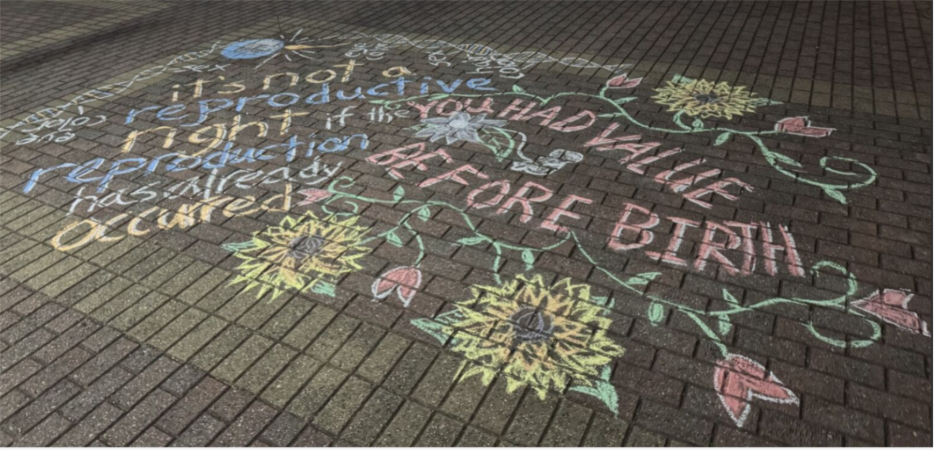 it's not a
reproductive
right if the
reproduction
has already
occurred
YOU HAD VALUE
BEFORE BIRTH